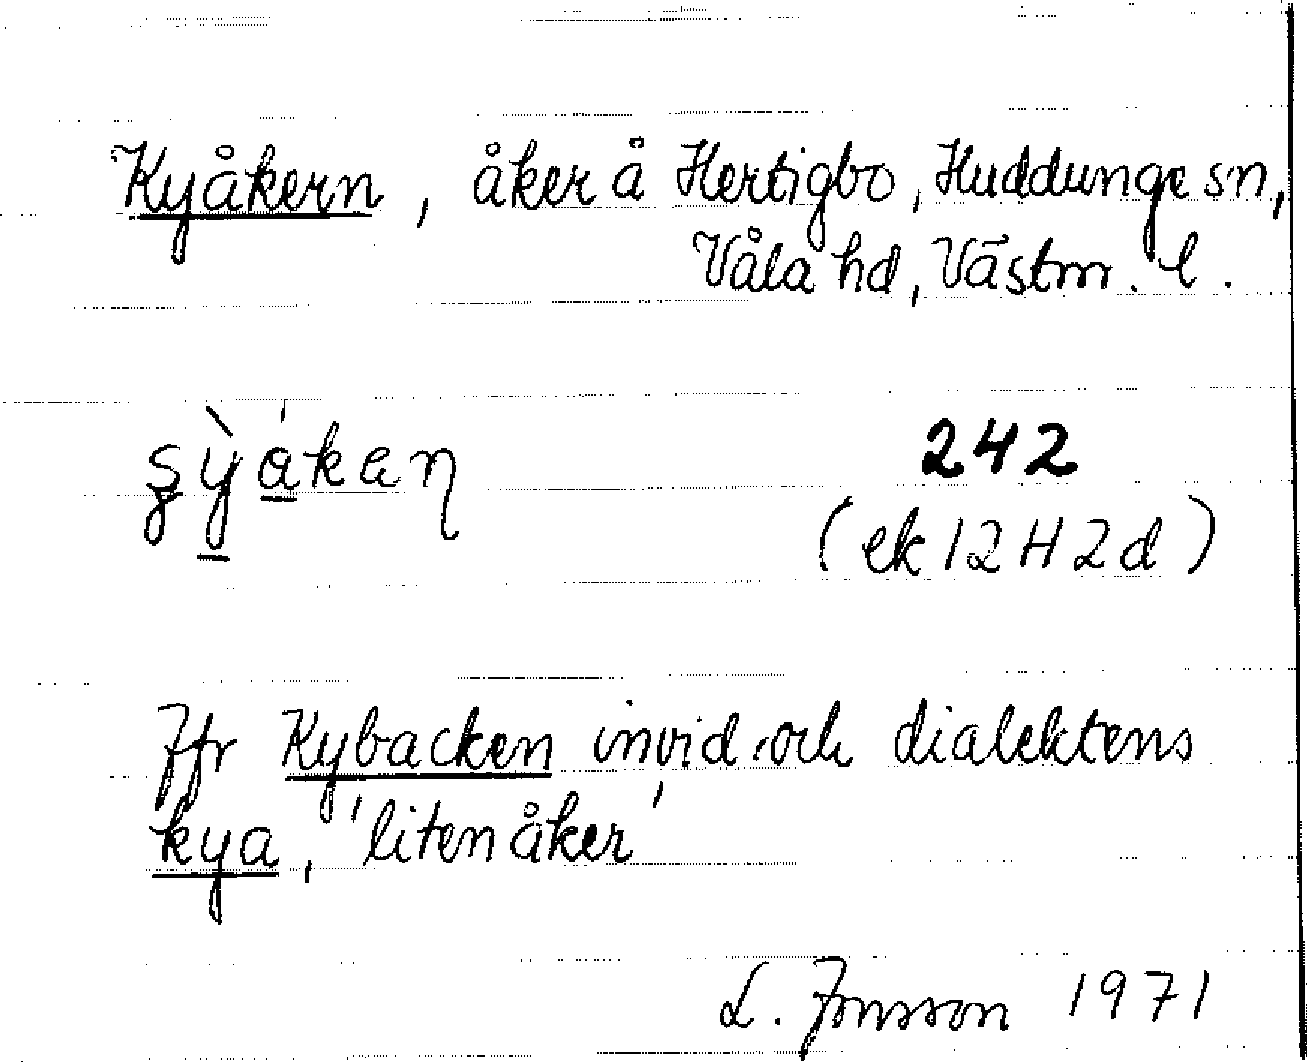 Kyåkern, åker å Hertigbo, Huddunge sn,
Våla hd, Västm. l.
242
(ek 12H2d)
Jfr Kybacken invid och dialektens
kya, 'liten åker'
L. Jonsson 1971